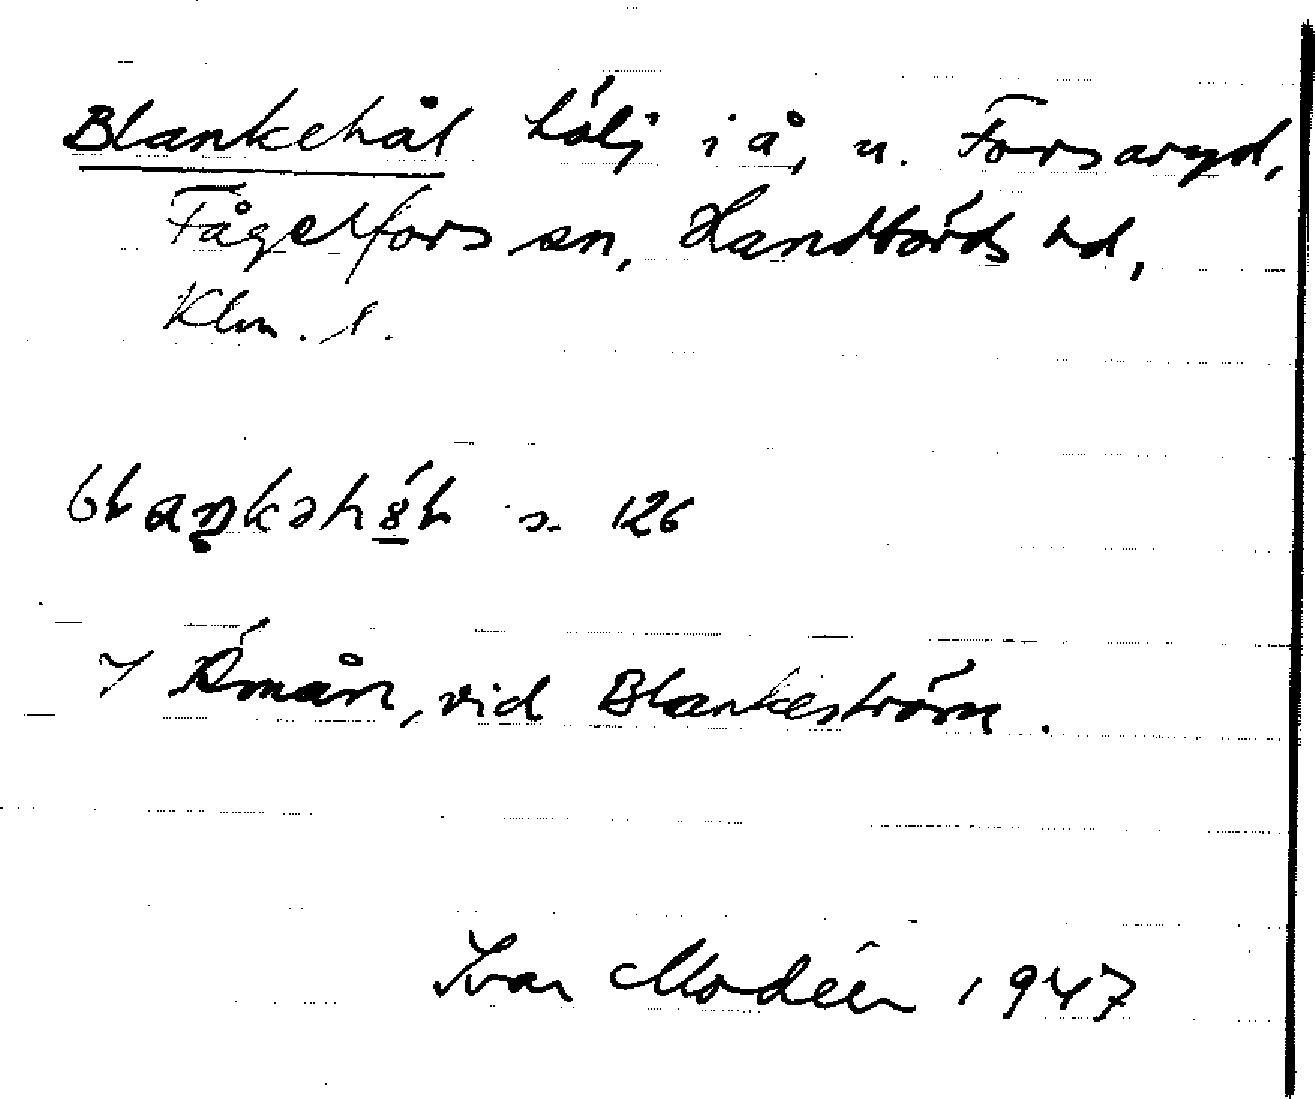 Blankehål hölj i å, u. Forsaryd,
Fågelfors sn, Handbörds hd,
Klm. l.
126
I Emån, vid Blankeström.
Ivar Modéer 1947